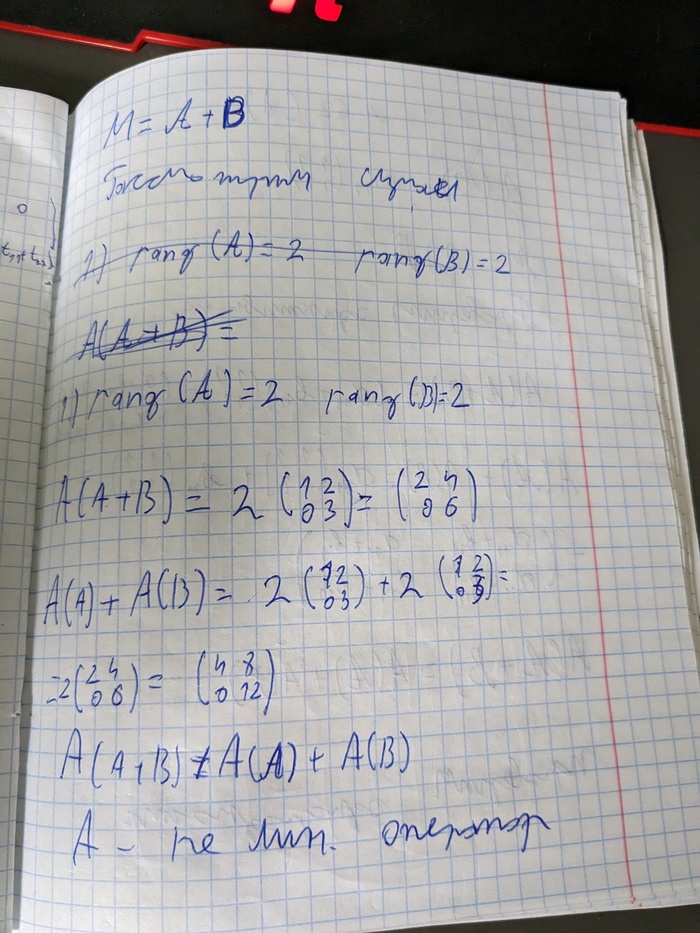 M = A + B
Рассмотрим случаи
1) rang(A) = 2 rang(B) = 2
A(A + B) =
1) rang(A) = 2 rang(B) = 2
A(A + B) = 2 (1 2
0 3) = (2 4
0 6)
A(A) + A(B) = 2 (1 2
0 3) + 2 (1 2
0 3) =
= 2 (2 4
0 6) = (4 8
0 12)
A(A + B) ≠ A(A) + A(B)
A - не лин. оператор